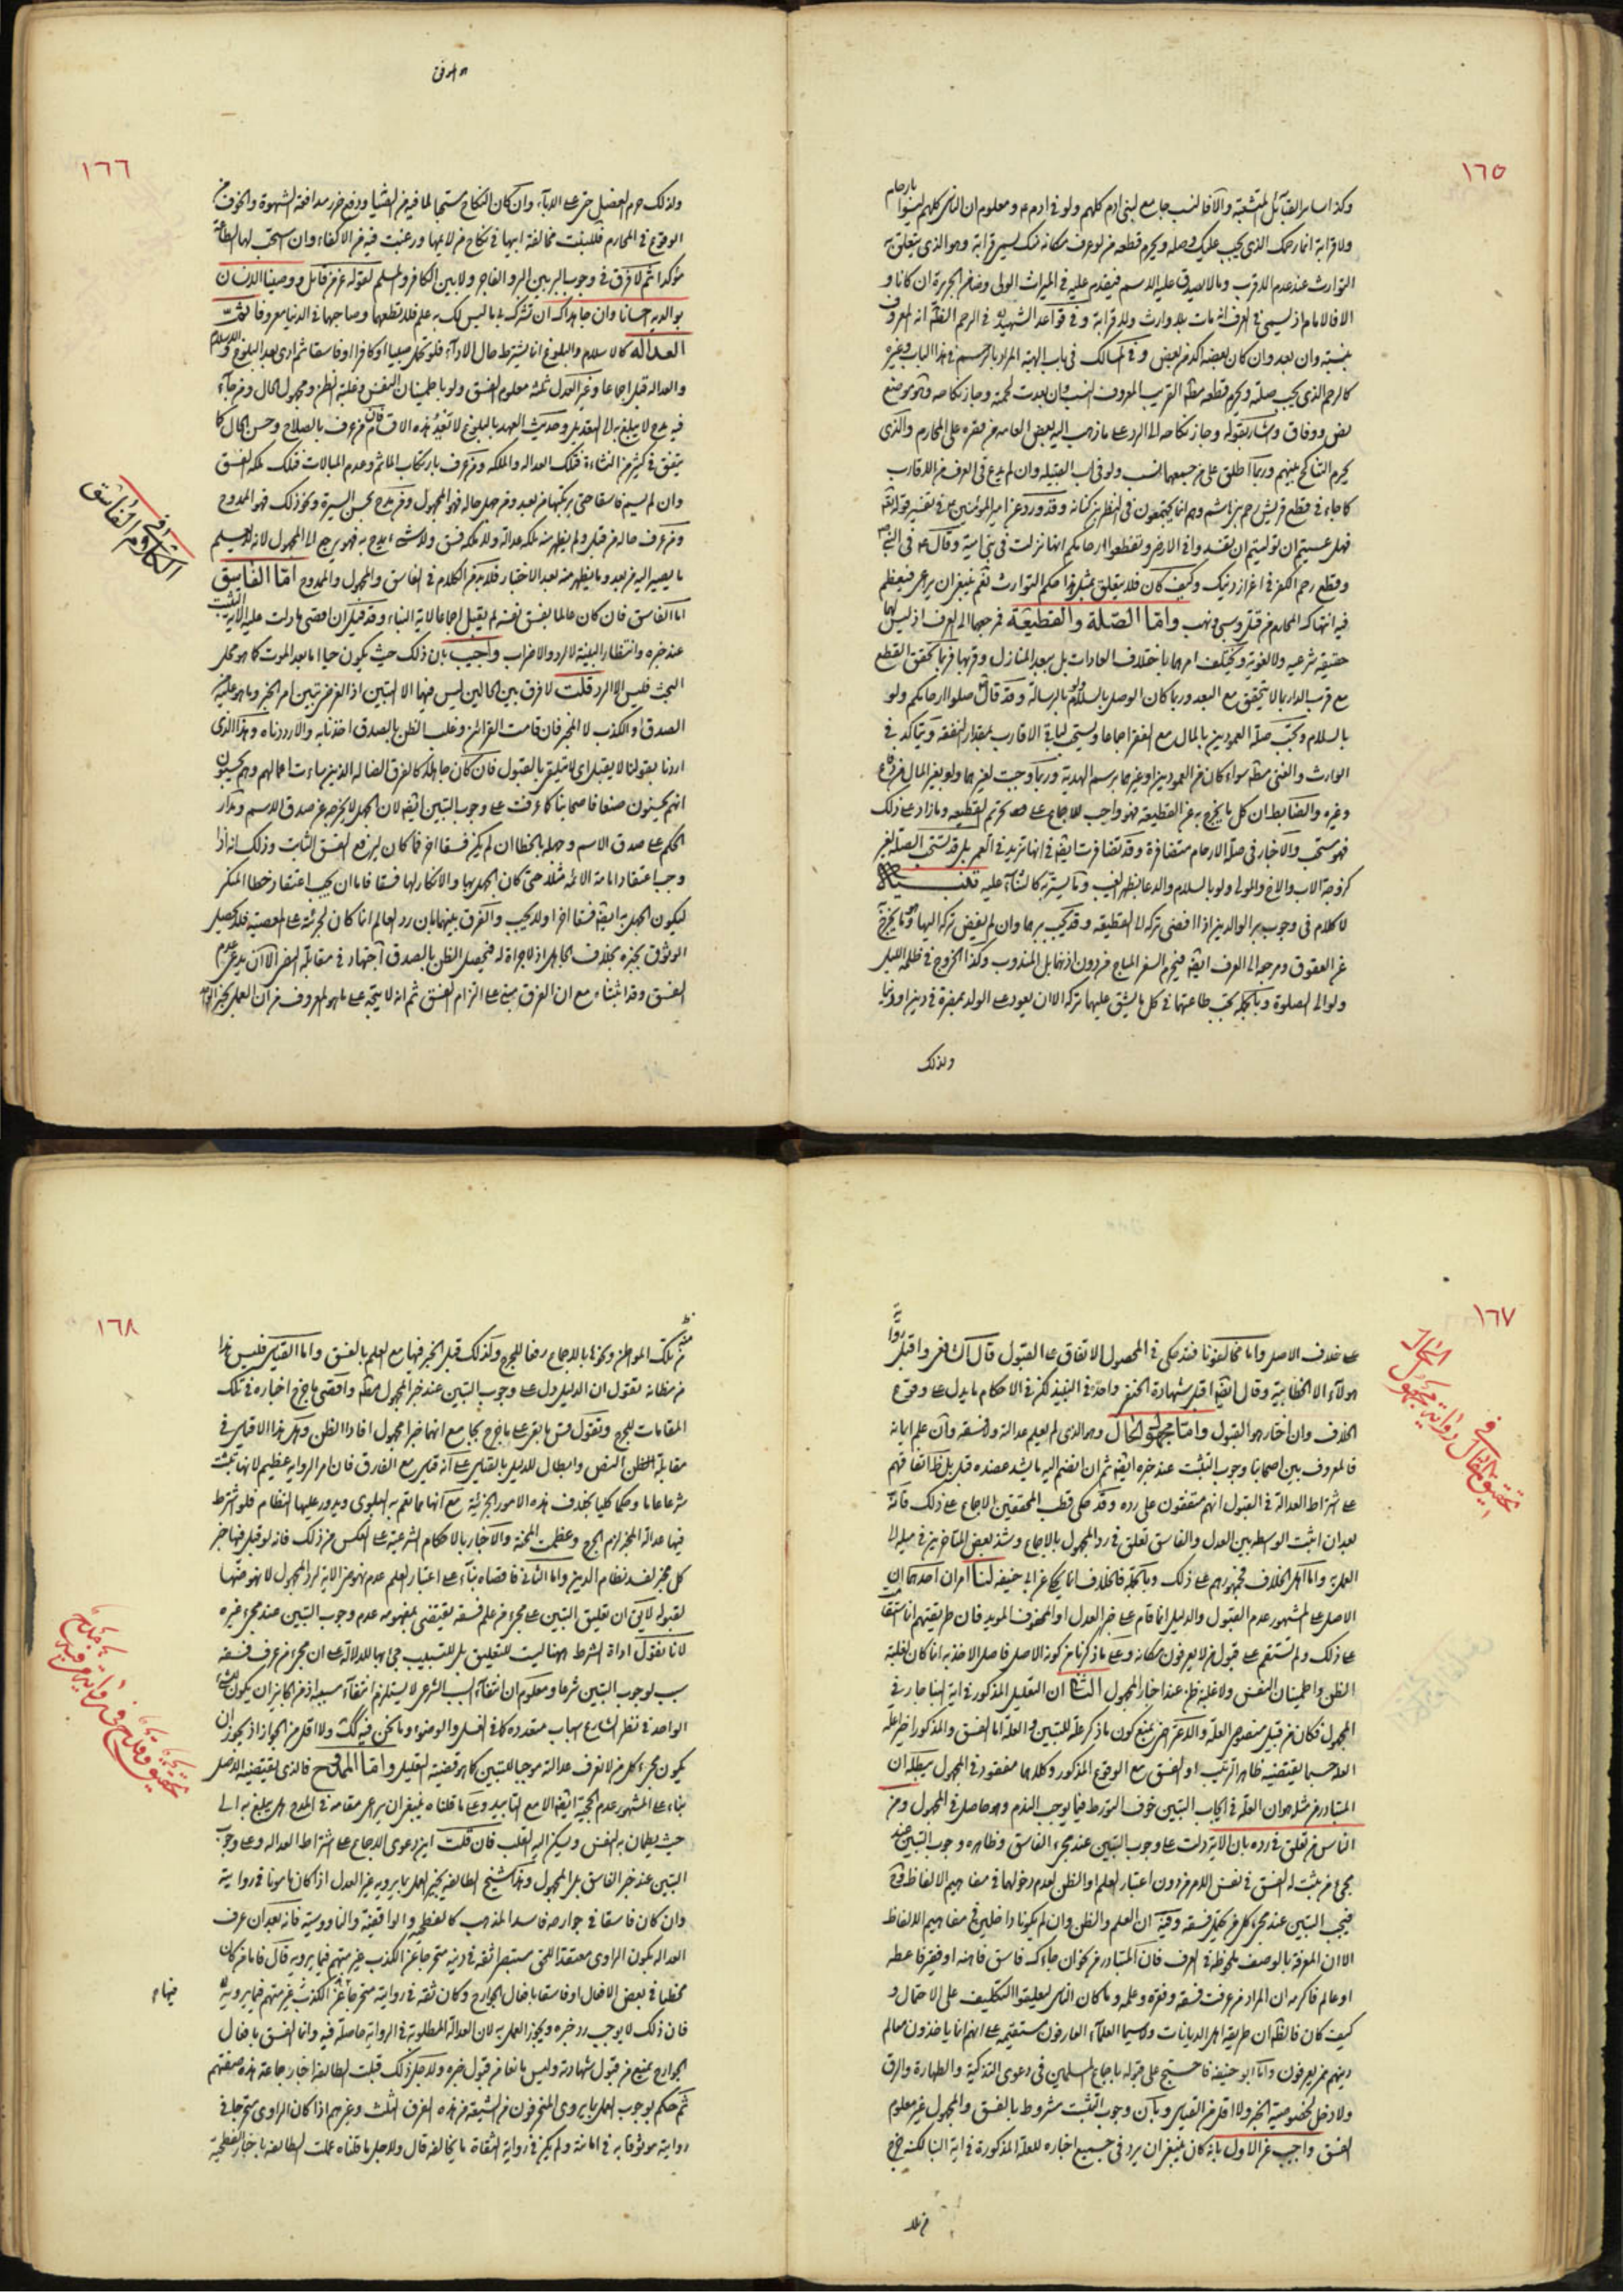 ١٦٥
وكذا سائر القبائل المتشعبة والا فالنسب جامع لبني ادم كلهم ولو في ادم ع ومعلوم ان الناس كلهم ليسوا بارحام
ولا قرابة انما رحمك الذي يجب عليك وصله ويحرم قطعه من لو عرف مكانه منك يسمى قرابة وهو الذي يتعلق به
التوارث عند عدم الاقرب وما لا يصدق عليه الاسم فيقدم عليه في الميراث المولى وضامن الجريرة ان كانا و
الا فالامام اذ يسمى في العرف انه مات بلا وارث ولا قرابة وفي قواعد الشهيد في الرحم الظاهر انه المعروف
بنسبه وان بعد وان كان بعضه آكد من بعض وفي المسالك في باب الهبة المراد بالرحم في هذا الباب وغيره
كالرحم الذي يجب صلته ويحرم قطعه مطلق القريب المعروف النسب وان بعدت لحمته وجاز نكاحه وهو موضع
نص ووفاق واشار بقوله وجاز نكاحه الى الرد على ما ذهب اليه بعض العامة من قصره على المحارم والذي
يحرم التناكح بينهم وربما اطلق على من جمعهما النسب ولو في اب القبيلة وان لم يدع في العرف من الاقارب
كما جاء في قطع قريش رحم بني هاشم وهم انما يجتمعون في النضر بن كنانة وقد ورد عن امير المؤمنين ع في تفسير قوله تعالى
فهل عسيتم ان توليتم ان تفسدوا في الارض وتقطعوا ارحامكم انها نزلت في بني امية
وكيف كان فلا يتعلق بمثل هذا حكم التوارث نعم ينبغي ان يراعى فيعظم
واما الصلة والقطيعة فمرجعهما الى العرف اذ ليس لهما
حقيقة شرعية ولا لغوية ويختلف امرهما باختلاف العادات بل ببعد المنازل وقربها فربما تحقق القطع
مع قرب الدار بما لا يتحقق مع البعد وربما كان الوصل بالسلام ولو بالرسالة وقد قال ص صلوا ارحامكم ولو
بالسلام وتجب صلة العمودين بالمال مع الفقر اجماعا ويستحب لباقي الاقارب بمقدار النفقة ويتاكد في
الوارث
وغيره والضابط ان كل ما يخرج به عن القطيعة فهو واجب للاجماع على تحريم القطيعة وما زاد على ذلك
فهو مستحب والاخبار في صلة الارحام متضافرة وقد تضافرت ايضا في انها تزيد في العمر بل قد تستحب الصلة لغير
كزوجة الاب والاخ والمولى ولو بالسلام والدعاء بظهر الغيب
لا كلام في وجوب بر الوالدين اذا افضى تركه الى القطيعة وقد يجب برهما وان لم يفض تركه اليها وهو ما يخرج
عن العقوق ومرجعه الى العرف ايضا فيحرم السفر المباح من دون اذنهما بل المندوب وكذا الخروج في ظلمة الليل
ولو الى الصلوة وبالجملة تجب طاعتهما في كل ما يشق عليهما تركه الا ان يعود على الولد بمضرة في دين او دنيا
ولذلك
١٦٦
ولذلك حرم العضل حتى على الاباء وان كان النكاح مستحبا لما فيه من
الوقوع في المحارم فللبنت مخالفة ابيها في نكاح من لا يلائمها ورغبت فيه من الاكفاء وان استحب لها الطاعة
مؤكدا ثم لا فرق في وجوب البر بين البر والفاجر ولا بين الكافر والمسلم لقوله عز من قائل ووصينا الانسان
بوالديه احسانا وان جاهداك ان تشرك بي ما ليس لك به علم فلا تطعهما وصاحبهما في الدنيا معروفا
العدالة كالاسلام والبلوغ انما يشترط حال الاداء فلو تحمل صبيا او كافرا او فاسقا ثم ادى بعد البلوغ والاسلام
والعدالة قبل اجماعا وغير العدل ثلثة معلوم الفسق ولو باطمينان النفس وغلبة الظن ومجهول الحال ومن جاء
فيه مدح لا يبلغ به الى التعديل وحديث العهد بالبلوغ لا تعدوه هذه الاقسام فان من عرف بالصلاح وحسن الحال كما
يتفق في كثير من النشاءة فتلك العدالة والملكة ومن عرف بارتكاب الماثم وعدم المبالات فتلك ملكة الفسق
وان لم يسم فاسقا حتى يرتكبها من بعد ومن جهل حاله فهو المجهول ومن مدح بحسن السيرة ونحو ذلك فهو الممدوح
ومن عرف حاله من قبل ولم يظهر منه ملكة عدالة ولا ملكة فسق ولا شيء يمدح به فهو يرجع الى المجهول لانه لا يعلم
ما يصير اليه من بعد وما يظهر منه بعد الاختبار فلابد من الكلام في الفاسق والمجهول والممدوح اما الفاسق
في الكلام في الفاسق
اما الفاسق فان كان عالما بفسق نفسه لم يقبل اجماعا لاية النباء وقد قيل ان اقصى ما دلت عليه الاية التثبت
عند خبره وانتظار البينة لا الرد والاضراب واجيب بان ذلك حيث يكون حيا اما بعد الموت كما هو محل
البحث فليس الا الرد قلت لا فرق بين الحالين ليس فيهما الا التبين اذ الغرض تبين امر الخبر وما هو عليه من
الصدق او الكذب لا المخبر فان قامت القرائن وغلب الظن بالصدق اخذنا به والا رددناه وهذا الذي
اردنا بقولنا لا يقبل اي لا يتلقى بالقبول فان كان جاهلا كالفرق الضالة الذين ساءت اعمالهم وهم يحسبون
انهم يحسنون صنعا فاصحابنا كما عرفت على وجوب التبين ايضا لان الجهل لا يخرجه عن صدق الاسم ومدار
الحكم على صدق الاسم وجهله بالخطا ان لم يكن فسقا اخر فما كان ليرفع الفسق الثابت وذلك انه اذا
وجب اعتقاد امامة الائمة مثلا حتى كان الجهل بها والانكار لها فسقا
ليكون الجهل به ايضا فسقا اخر اولا يجب والفرق بينهما بان رد العالم انما كان لجرئته على المعصية فلا يحصل
الوثوق بخبره بخلاف الجاهل اذ لا جراة له فيحصل الظن بالصدق اجتهاد في مقابلة النص الا ان يدعى عدم
الفسق وقد اثبتناه مع ان الفرق مبني على التزام الفسق ثم انه لا يتجه على ما هو المعروف من ان العمل بخبر الواحد
١٦٧
على خلاف الاصل واما مخالفونا فقد حكى في المحصول الاتفاق على القبول قال الشافعي واقبل رواية
هولاء الا الخطابية وقال ايضا اقبل شهادة الحنفي واحده في النبيذ لكن في الاحكام ما يدل على وقوع
الخلاف وان اختار هو القبول واما مجهول الحال وهو الذي لم يعلم عدالته ولا فسقه وان علم ايمانه
في تحقيق الحال رواية مجهول الحال
فالمعروف بين اصحابنا وجوب التثبت عند خبره ايضا ثم ان انضم اليه ما يشد عضده قبل بل ظاهر اتفاقهم
على اشتراط العدالة في القبول انهم متفقون على رده وقد حكى قطب المحققين الاجماع على ذلك فانه
بعد ان اثبت الوسط بين العدل والفاسق تعلق في رد المجهول بالاجماع وشذ بعض المتاخرين في ميله الى
العمل به واما اهل الخلاف فجمهورهم على ذلك وبالجملة فالخلاف انما يحكى عن ابي حنيفة لنا امران احدهما ان
الاصل على المشهور عدم القبول والدليل انما قام على خبر العدل او المحفوف المؤيد فان طريقتهم انما استقامت
على ذلك ولم تستقم على قبول من لا يعرفون مكانه وعلى ما ذكرنا من كونه الاصل فاصل الاخذ به انما كان لغلبة
الظن واطمينان النفس ولا غلبة ظن عند اخبار المجهول الثاني ان التعليل المذكور في اية النبا جار في
المجهول فكان من قبيل منصوص العلة
المتبادر من مثله هو ان العلة في ايجاب التبين خوف التورط فيما يوجب الندم وهو حاصل في المجهول ومن
الناس من تعلق في رده بان الاية دلت على وجوب التبين عند مجيء الفاسق وظاهره وجوب التبين عند
مجيء من ثبت له الفسق في نفس الامر من دون اعتبار العلم او الظن لعدم دخولهما في مفاهيم الالفاظ
فيجب التبين عند مجيء كل من يحتمل فسقه وفيه ان العلم والظن وان لم يكونا داخلين في مفاهيم الالفاظ
الا ان المعرفة بالوصف ملحوظة في العرف فان المتبادر من نحو ان جاءك فاسق فاهنه او فقير فاعطه
او عالم فاكرمه ان المراد من عرفت فسقه وفقره وعلمه وما كان الناس ليعلقوا التكليف على الاحتمال و
كيف كان فالظاهر ان طريقة اهل الديانات ولا سيما العلماء العارفون مستقيمة على انهم انما ياخذون معالم
دينهم ممن يعرفون واما ابو حنيفة فاحتج على قبوله باجماع المسلمين في دعوى التذكية والطهارة والرق
ولا دخل لخصوصية الخبر ولا اقل من القياس وبان وجوب التثبت مشروط بالفسق والمجهول غير معلوم
الفسق واجيب عن الاول بانه كان ينبغي ان يرد في جميع اخباره للعلة المذكورة في اية النبا لكنه خرج
١٦٨
من تلك المواطن ونحوها بالاجماع رفعا للحرج ولذلك قبل الخبر فيها مع العلم بالفسق واما القياس فليس هذا
من مظانه نقول ان الدليل دل على وجوب التبين عند خبر المجهول مطلقا واقصى ما خرج اخباره في تلك
المقامات للحرج
مقابلة النص وابطال للدليل بالقياس على انه قياس مع الفارق فان امر الرواية عظيم لانها تثبت
شرعا عاما وحكما كليا بخلاف هذه الامور الجزئية مع انها مما تعم به البلوى ويدور عليها النظام فلو اشترط
فيها عدالة المخبر لزم الحرج وعظمت المحنة والاخبار بالاحكام الشرعية على العكس من ذلك فانه لو قبل فيها خبر
كل مخبر لفسد نظام الدين واما الثاني فاقصاه بناء على اعتبار العلم عدم نهوض الاية لرد المجهول لا نهوضها
لقبوله لا يقال ان تعليق التبين على مجيء من علم فسقه يقتضي بمفهومه عدم وجوب التبين عند مجيء غيره
لانا نقول اداة الشرط ههنا ليست للتعليق بل للتسبيب جيء بها للدلالة على ان مجيء من عرف فسقه
سبب لوجوب التبين شرعا ومعلوم ان انتفاء السبب الشرعي لا يستلزم انتفاء مسببه اذ من الجائز ان يكون للشيء
الواحد في نظر الشارع اسباب متعددة كما في الغسل والوضوء وما نحن فيه كك ولا اقل من الجواز اذ يجوز ان
يكون مجيء كل من لا نعرف عدالته موجبا للتبين كما هو قضية التعليل واما الممدوح فالذي يقتضيه الاصل
بناء على المشهور عدم الحجية ايضا الا مع التاييد وعلى ما قلناه ينبغي ان يراعى مقامه في المدح هل يبلغ به الى
حيث يطمان به النفس ويسكن اليه القلب فان قلت اين دعوى الاجماع على اشتراط العدالة وعلى وجوب
التبين عند خبر الفاسق بل المجهول وهذا شيخ الطائفة يجيز العمل بما يرويه غير العدل اذا كان مامونا في روايته
وان كان فاسقا في جوارحه فاسد المذهب كالفطحية والواقفية والناووسية فانه بعد ان عرف
العدالة بكون الراوي معتقدا للحق مستبصرا ثقة في دينه متحرجا عن الكذب غير متهم فيما يرويه قال فاما من كان
مخطئا في بعض الافعال او فاسقا بافعال الجوارح وكان ثقة في روايته متحرجا عن الكذب غير متهم فيما يرويه
فيها
فان ذلك لا يوجب رد خبره ويجوز العمل به لان العدالة المطلوبة في الرواية حاصلة فيه وانما الفسق بافعال
الجوارح يمنع من قبول شهادته وليس بمانع من قبول خبره ولاجل ذلك قبلت الطائفة اخبار جماعة هذه صفتهم
ثم حكم بوجوب العمل بما يروي المنحرفون من الشيعة من هذه الفرق الثلث وغيرهم اذا كان الراوي متحرجا في
روايته موثوقا به في امانته ولم يكن في رواية الثقاة ما يخالفه قال ولاجل ما قلناه عملت الطائفة باخبار الفطحية